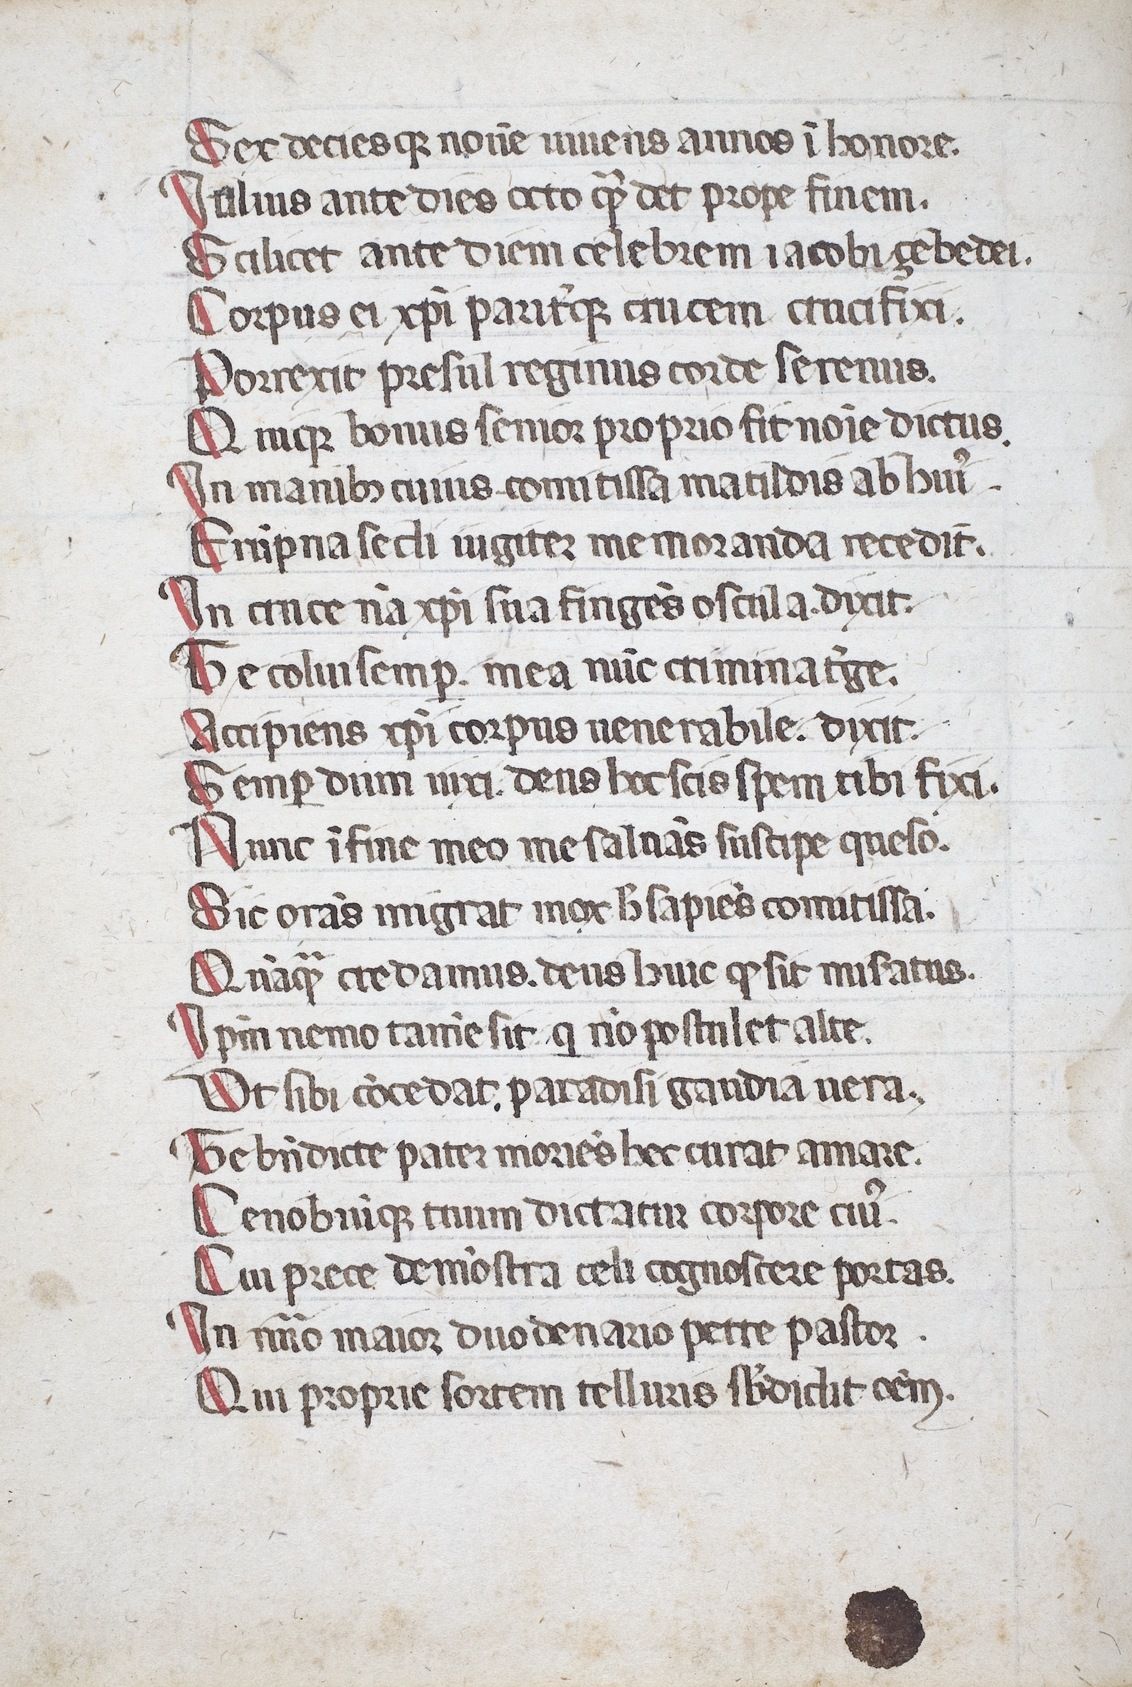 Sex decies qꝫ noue᷎ uiuens annos ī honore.
Iulius ante dies octo qͣ det prope finem.
Scilicet ante diem celebrem iacobi zebedei.
Corpus ei xp̄i parit᷎qꝫ crucem crucifixi.
Porrexit presul reginus corde serenus.
Quiqꝫ bonus senior proprio fit noīe dictus.
In manibꝫ cuius comitissa matildis ab huiꝰ.
Erūpna secli iugiter memoranda recedit.
In cruce nā xp̄i sua fingēs oscula. dixit.
Te colui semꝑ. mea nūc crimina t᷎ge.
Accipiens xp̄i corpus uenerabile. dixit.
Semꝑ dum uixi. deus hoc scis spem tibi fixi.
Nunc ī fine meo me saluās suscipe queso.
Sic orās migrat mox h̄ sapiēs comitissa.
Quāqͣ credamus. deus huic ꝙ sit mis᷎atus.
Ip̄m nemo tam̄e sit q nō postulet alte.
Ut sibi cōcedat. paradisi gaudia uera.
Te bn̄dicte pater moriēs hec curat amare.
Cenobiūqꝫ tuum dictatur corpore ciuꝰ.
Cui prece demōstra celi cognoscere portas.
In nūo maior duodenario petre pastor.
Qui proprie sortem telluris s᷎b̄didit oēm.